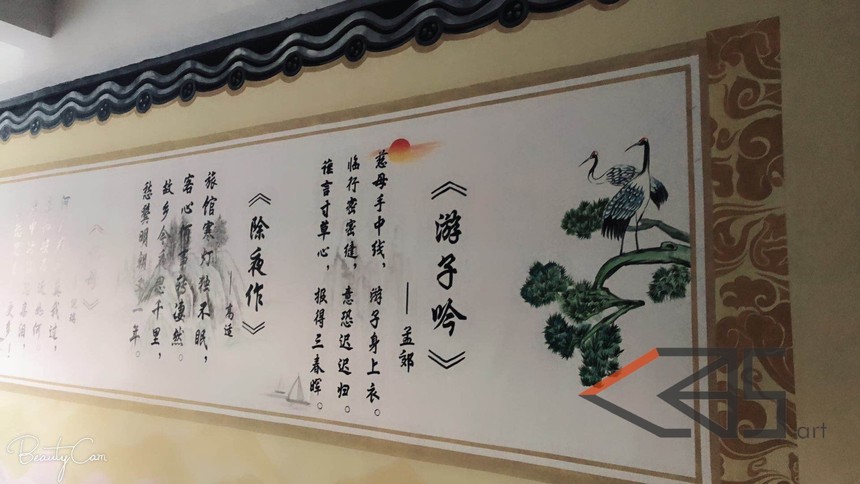 《游子吟》
——孟郊
慈母手中线，游子身上衣。
临行密密缝，意恐迟迟归。
谁言寸草心，报得三春晖。
《除夜作》
——高适
旅馆寒灯独不眠，
客心何事转凄然。
故乡今夜思千里，
愁鬓明朝又一年。
BeautyCam
art